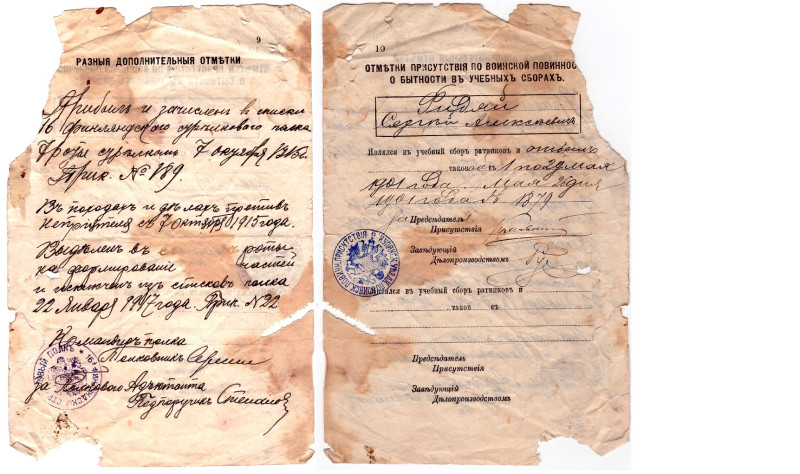 9
РАЗНЫЯ ДОПОЛНИТЕЛЬНЫЯ ОТМѢТКИ.
Прибылъ и зачисленъ в списки
16 Финляндского стрѣлкового полка
7 роты стрѣлкомъ 7 октября 1915 г.
Прик. № 189.
Въ походах и дѣлахъ противъ
Непрiятеля съ 7 октября 1915 года.
Выдѣленъ въ с роты
на формирование частей
и исключенъ изъ списковъ полка
22 Января 1917 года. Прик. № 22
Командиръ полка
за Полкового Адъютанта
Подпоручикъ
10
ОТМѢТКИ ПРИСУТСТВІЯ ПО ВОИНСКОЙ ПОВИННОС
О БЫТНОСТИ ВЪ УЧЕБНЫХЪ СБОРАХЪ.
Сергѣй Алексѣевичъ
Являлся въ учебный сборъ ратниковъ и отбылъ
таковой съ 1 по 29 мая
1901 года Мая дня
1901 года № 1379
За Предсѣдатель
Присутствія
Завѣдующій
Дѣлопроизводствомъ
Являлся въ учебный сборъ ратниковъ и
таков съ
Предсѣдатель
Присутствія
Завѣдующій
Дѣлопроизводствомъ